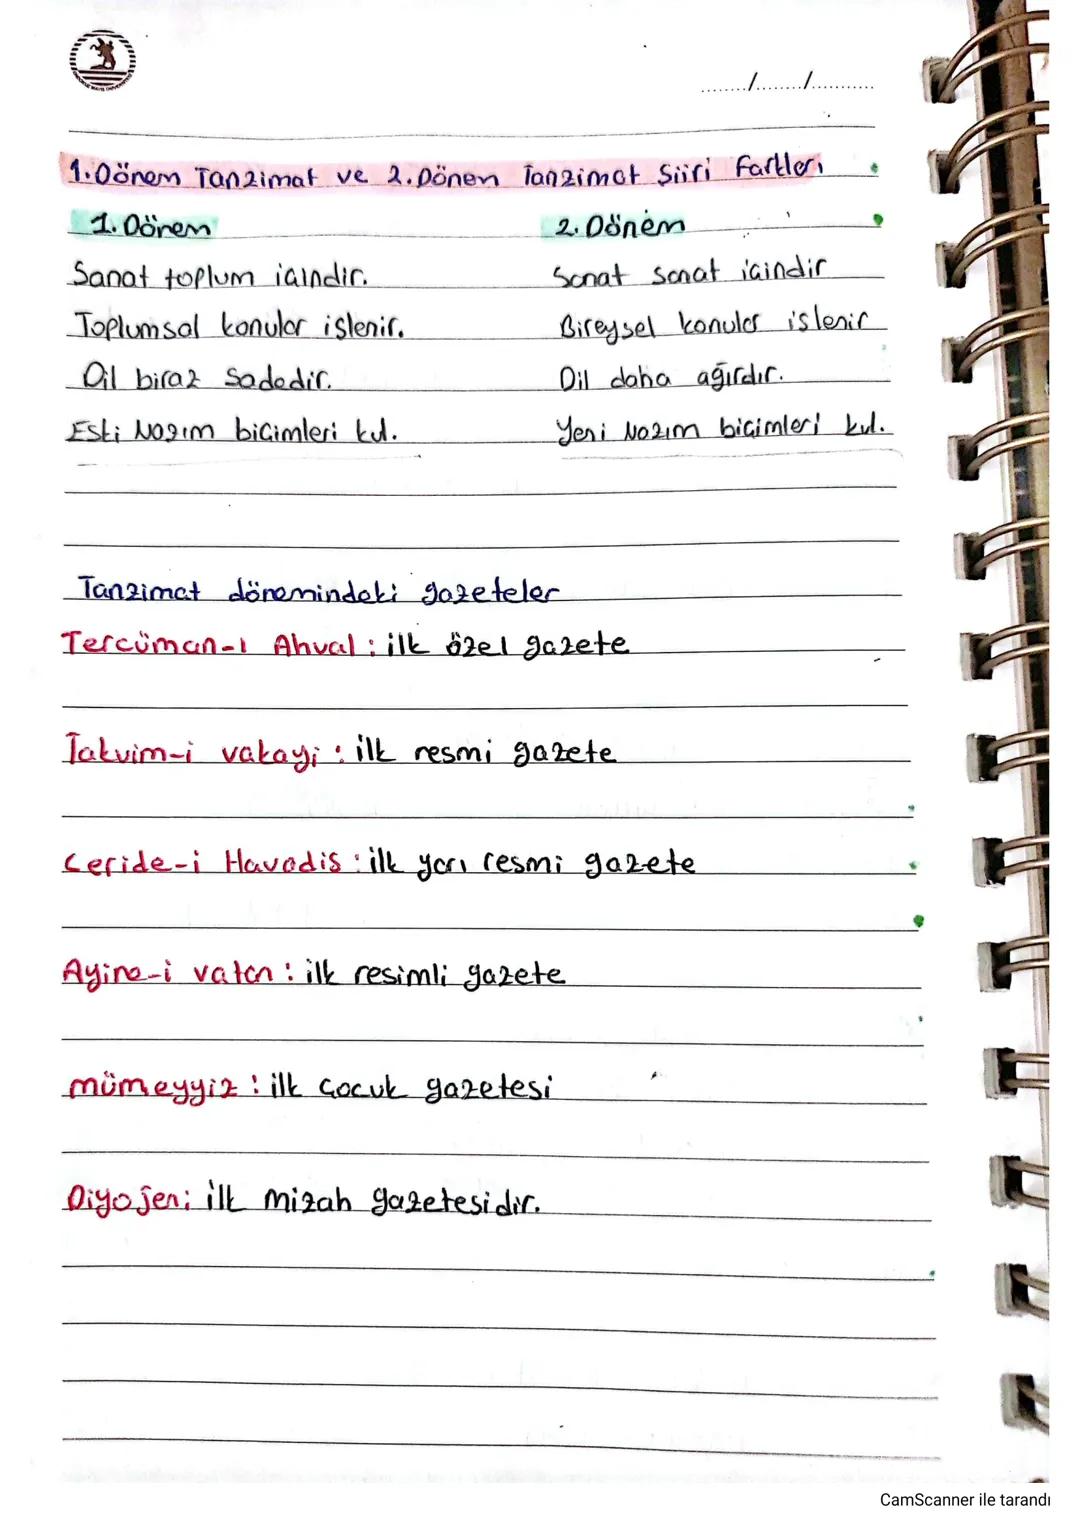 ......../......../...........
1. Dönem Tanzimat ve 2. Dönem Tanzimat Şiiri Farkları
1. Dönem 2. Dönem
Sanat toplum içindir. Sanat sanat içindir
Toplumsal konular işlenir. Bireysel konular işlenir
Dil biraz sadedir. Dil daha ağırdır.
Eski Nazım biçimleri kul. Yeni Nazım biçimleri kul.
Tanzimat dönemindeki gazeteler
Tercüman-ı Ahval : ilk özel gazete
Takvim-i vakayi : ilk resmi gazete
Ceride-i Havadis : ilk yarı resmi gazete
Ayine-i vatan : ilk resimli gazete
mümeyyiz : ilk çocuk gazetesi
Diyojen; ilk mizah gazetesidir.
CamScanner ile tarandı